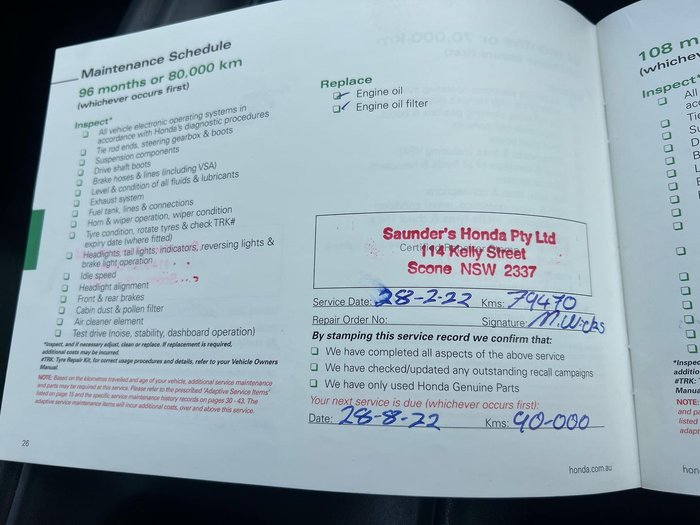 Maintenance Schedule
96 months or 80,000 km
(whichever occurs first)
Inspect*
All vehicle electronic operating systems in
accordance with Honda's diagnostic procedures
Tie rod ends, steering gearbox & boots
Suspension components
Drive shaft boots
Brake hoses & lines (including VSA)
Level & condition of all fluids & lubricants
Exhaust system
Fuel tank, lines & connections
Horn & wiper operation, wiper condition
Tyre condition, rotate tyres & check TRK#
expiry date (where fitted)
Headlights, tail lights, indicators, reversing lights &
brake light operation
Idle speed
Headlight alignment
Front & rear brakes
Cabin dust & pollen filter
Air cleaner element
Test drive (noise, stability, dashboard operation)
*Inspect, and if necessary adjust, clean or replace. If replacement is required,
additional costs may be incurred.
#TRK: Tyre Repair Kit, for correct usage procedures and details, refer to your Vehicle Owners
Manual.
NOTE: Based on the kilometres travelled and age of your vehicle, additional service maintenance
and parts may be required at this service. Please refer to the prescribed "Adaptive Service Items"
listed on page 15 and the specific service maintenance history records on pages 30 - 43. The
adaptive service maintenance items will incur additional costs, over and above this service.
26
Replace
Engine oil
Engine oil filter
Saunder's Honda Pty Ltd
114 Kelly Street
Scone NSW 2337
Service Date: 28-2-22 Kms: 79470
Repair Order No: Signature: M.Wicks
By stamping this service record we confirm that:
We have completed all aspects of the above service
We have checked/updated any outstanding recall campaigns
We have only used Honda Genuine Parts
Your next service is due (whichever occurs first):
Date: 28-8-22 Kms: 90-000
honda.com.au
108 m
(whichev
Inspect*
All
acc
Tie
Su
D
B
L
E
F
*Inspec
additio
#TRK:
Manua
NOTE:
and pa
listed
adapt
hon